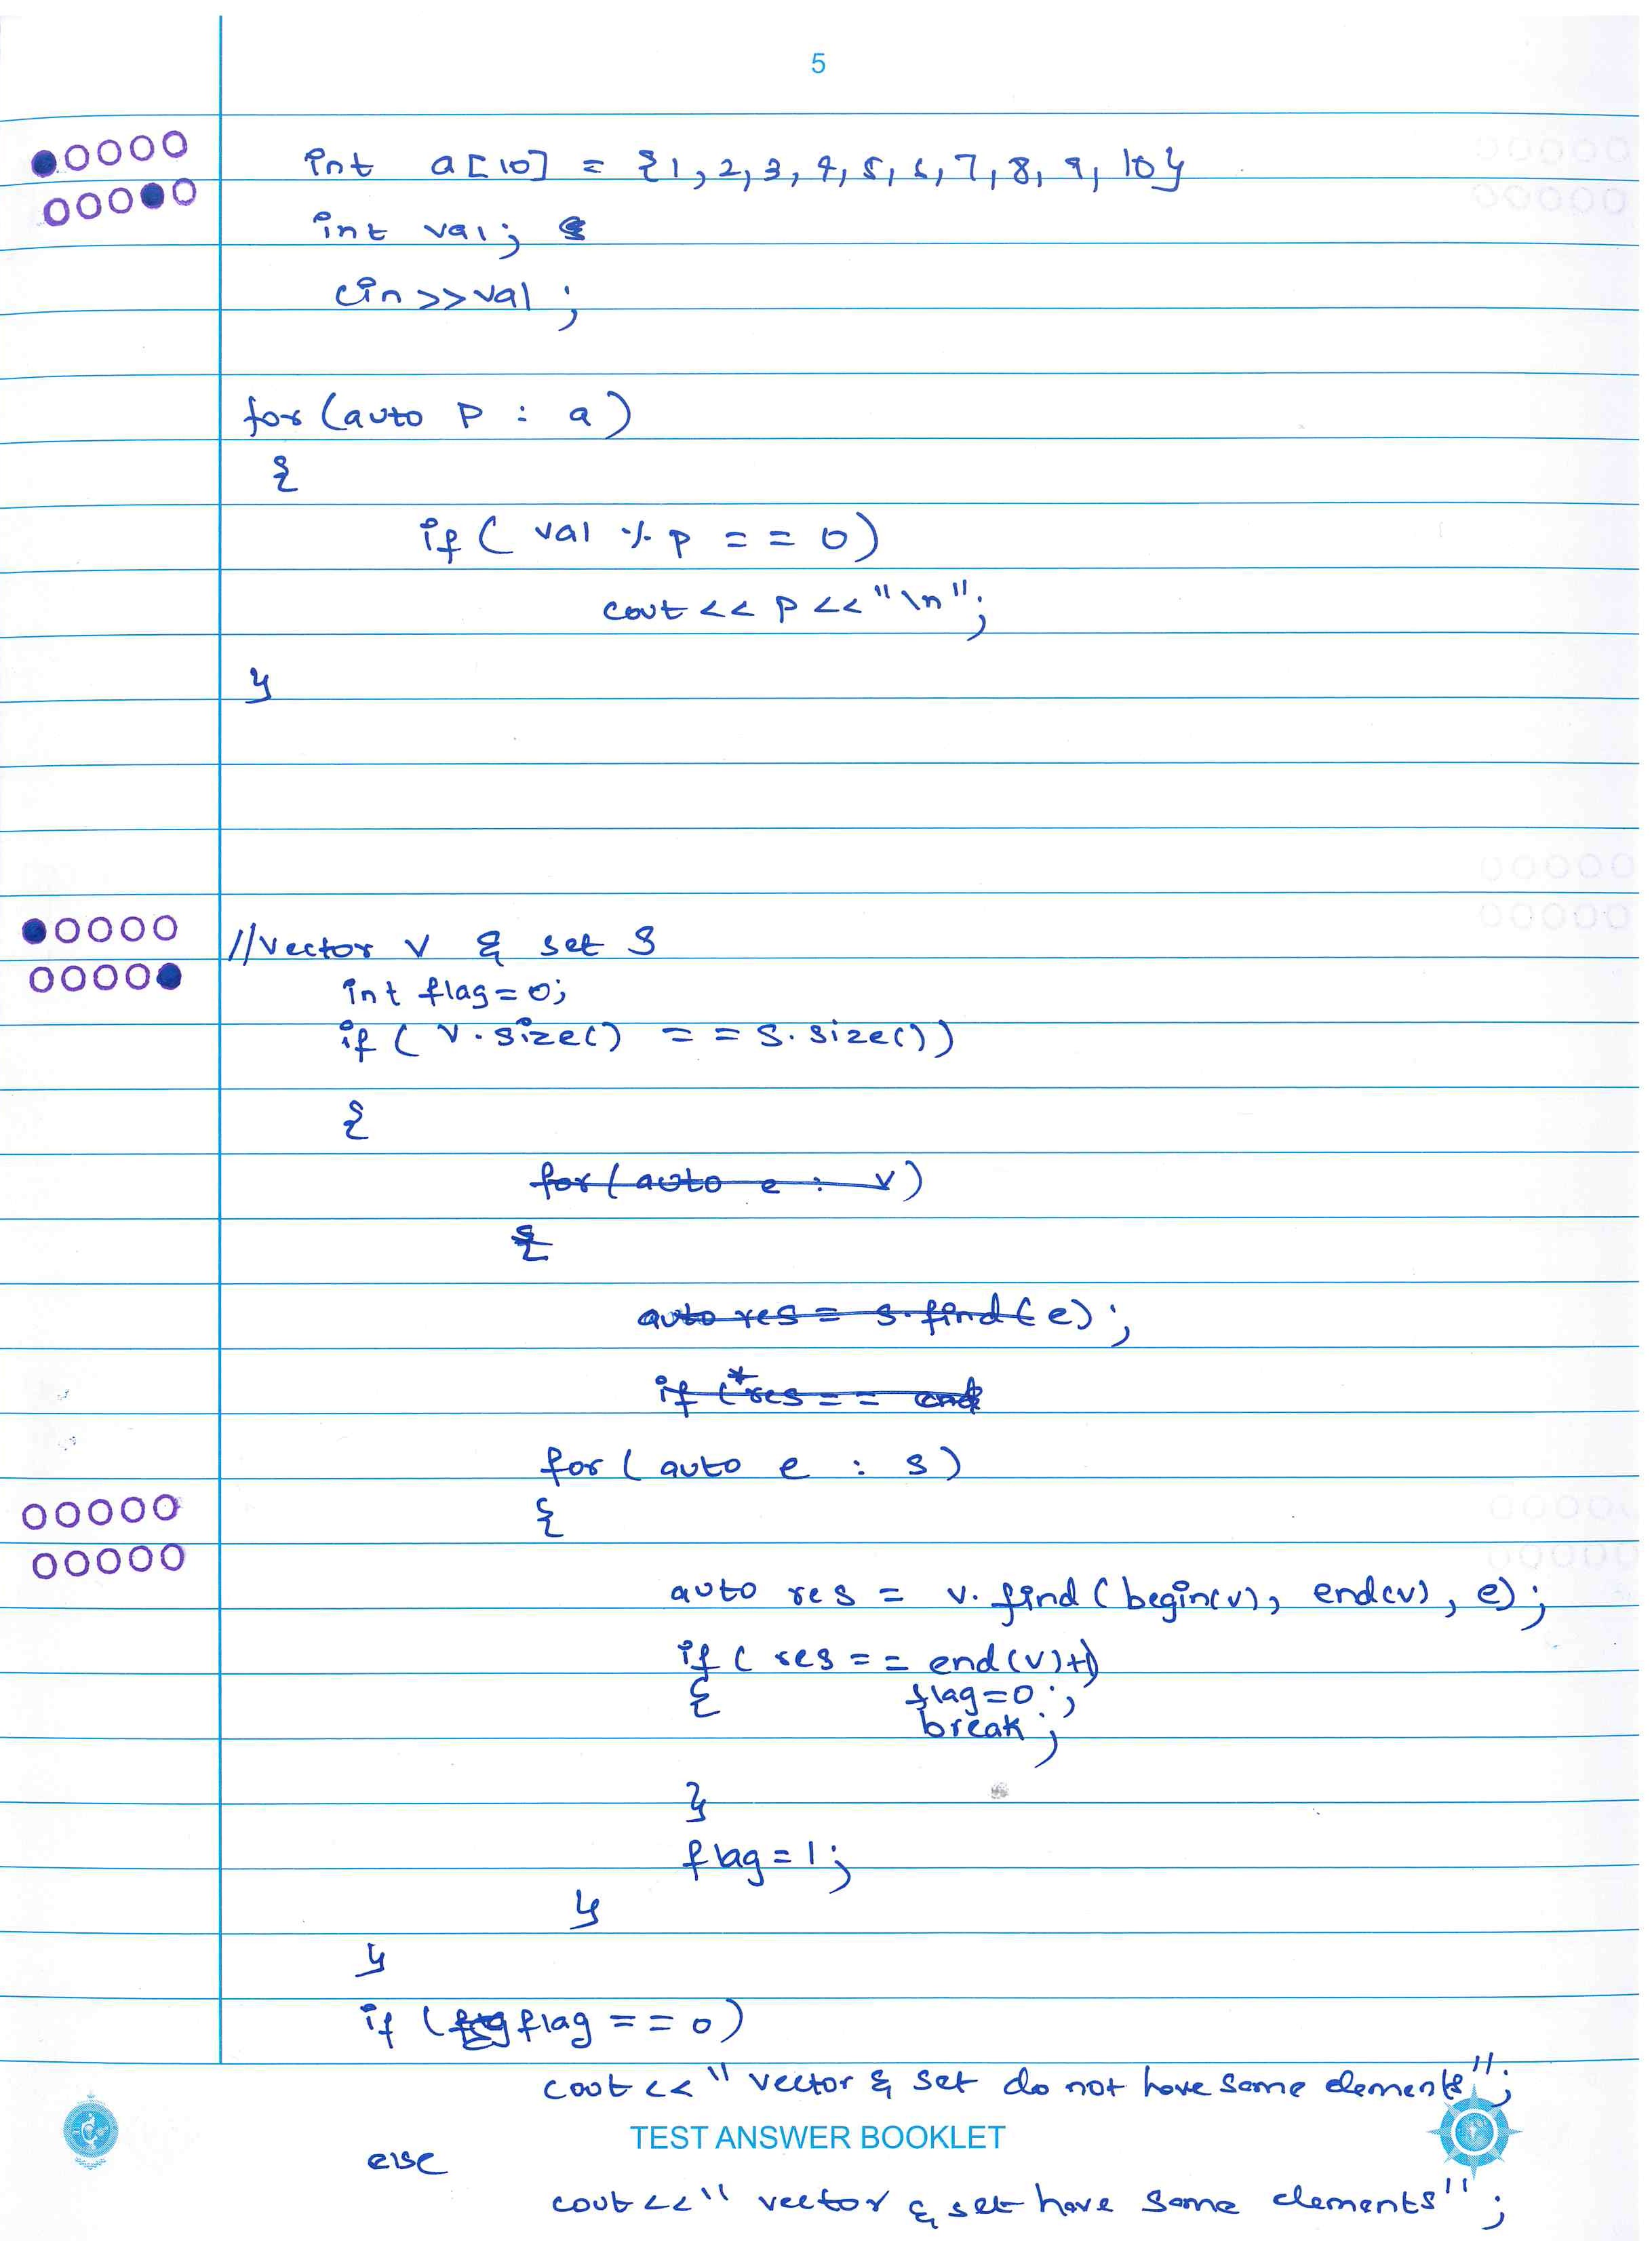 5
int a[10] = {1, 2, 3, 4, 5, 6, 7, 8, 9, 10}
int val;
cin>>val;
for (auto p : a)
{
if ( val % p == 0)
cout << p << "\n";
}
//vector v & set s
int flag=0;
if ( v.size() == s.size())
{
for (auto e : v)
{
auto res = s.find(e);
if (*res == end
for ( auto e : s)
{
auto res = v.find(begin(v), end(v), e);
if ( res == end(v)+1)
{ flag=0;
break;
}
flag=1;
}
}
if (flag == 0)
cout << " vector & set do not have same elements";
TEST ANSWER BOOKLET
else
cout << " vector & set have same elements";